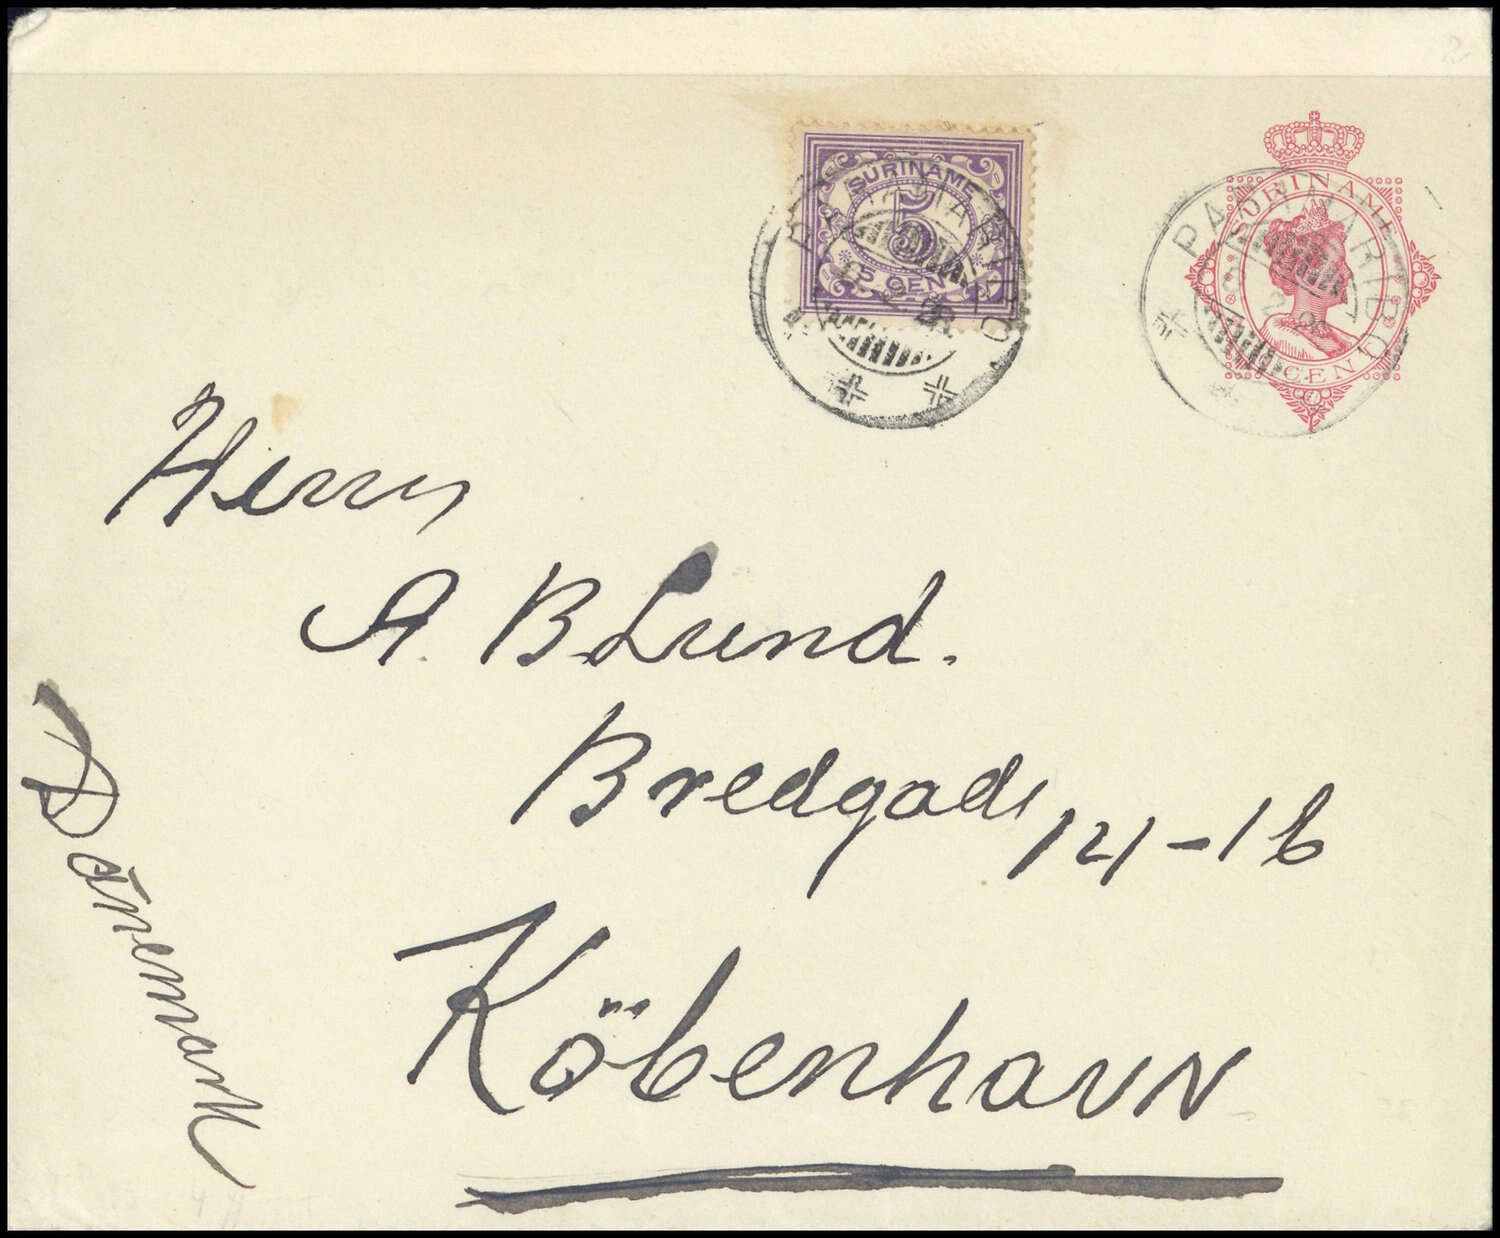 SURINAME
5
5 CENT
PARAMARIBO
2. 26
SURINAME
CENT
PARAMARIBO
2. 26
Herrn
A. B Lund.
Bredgade 141-16
Köbenhavn
Dänemark